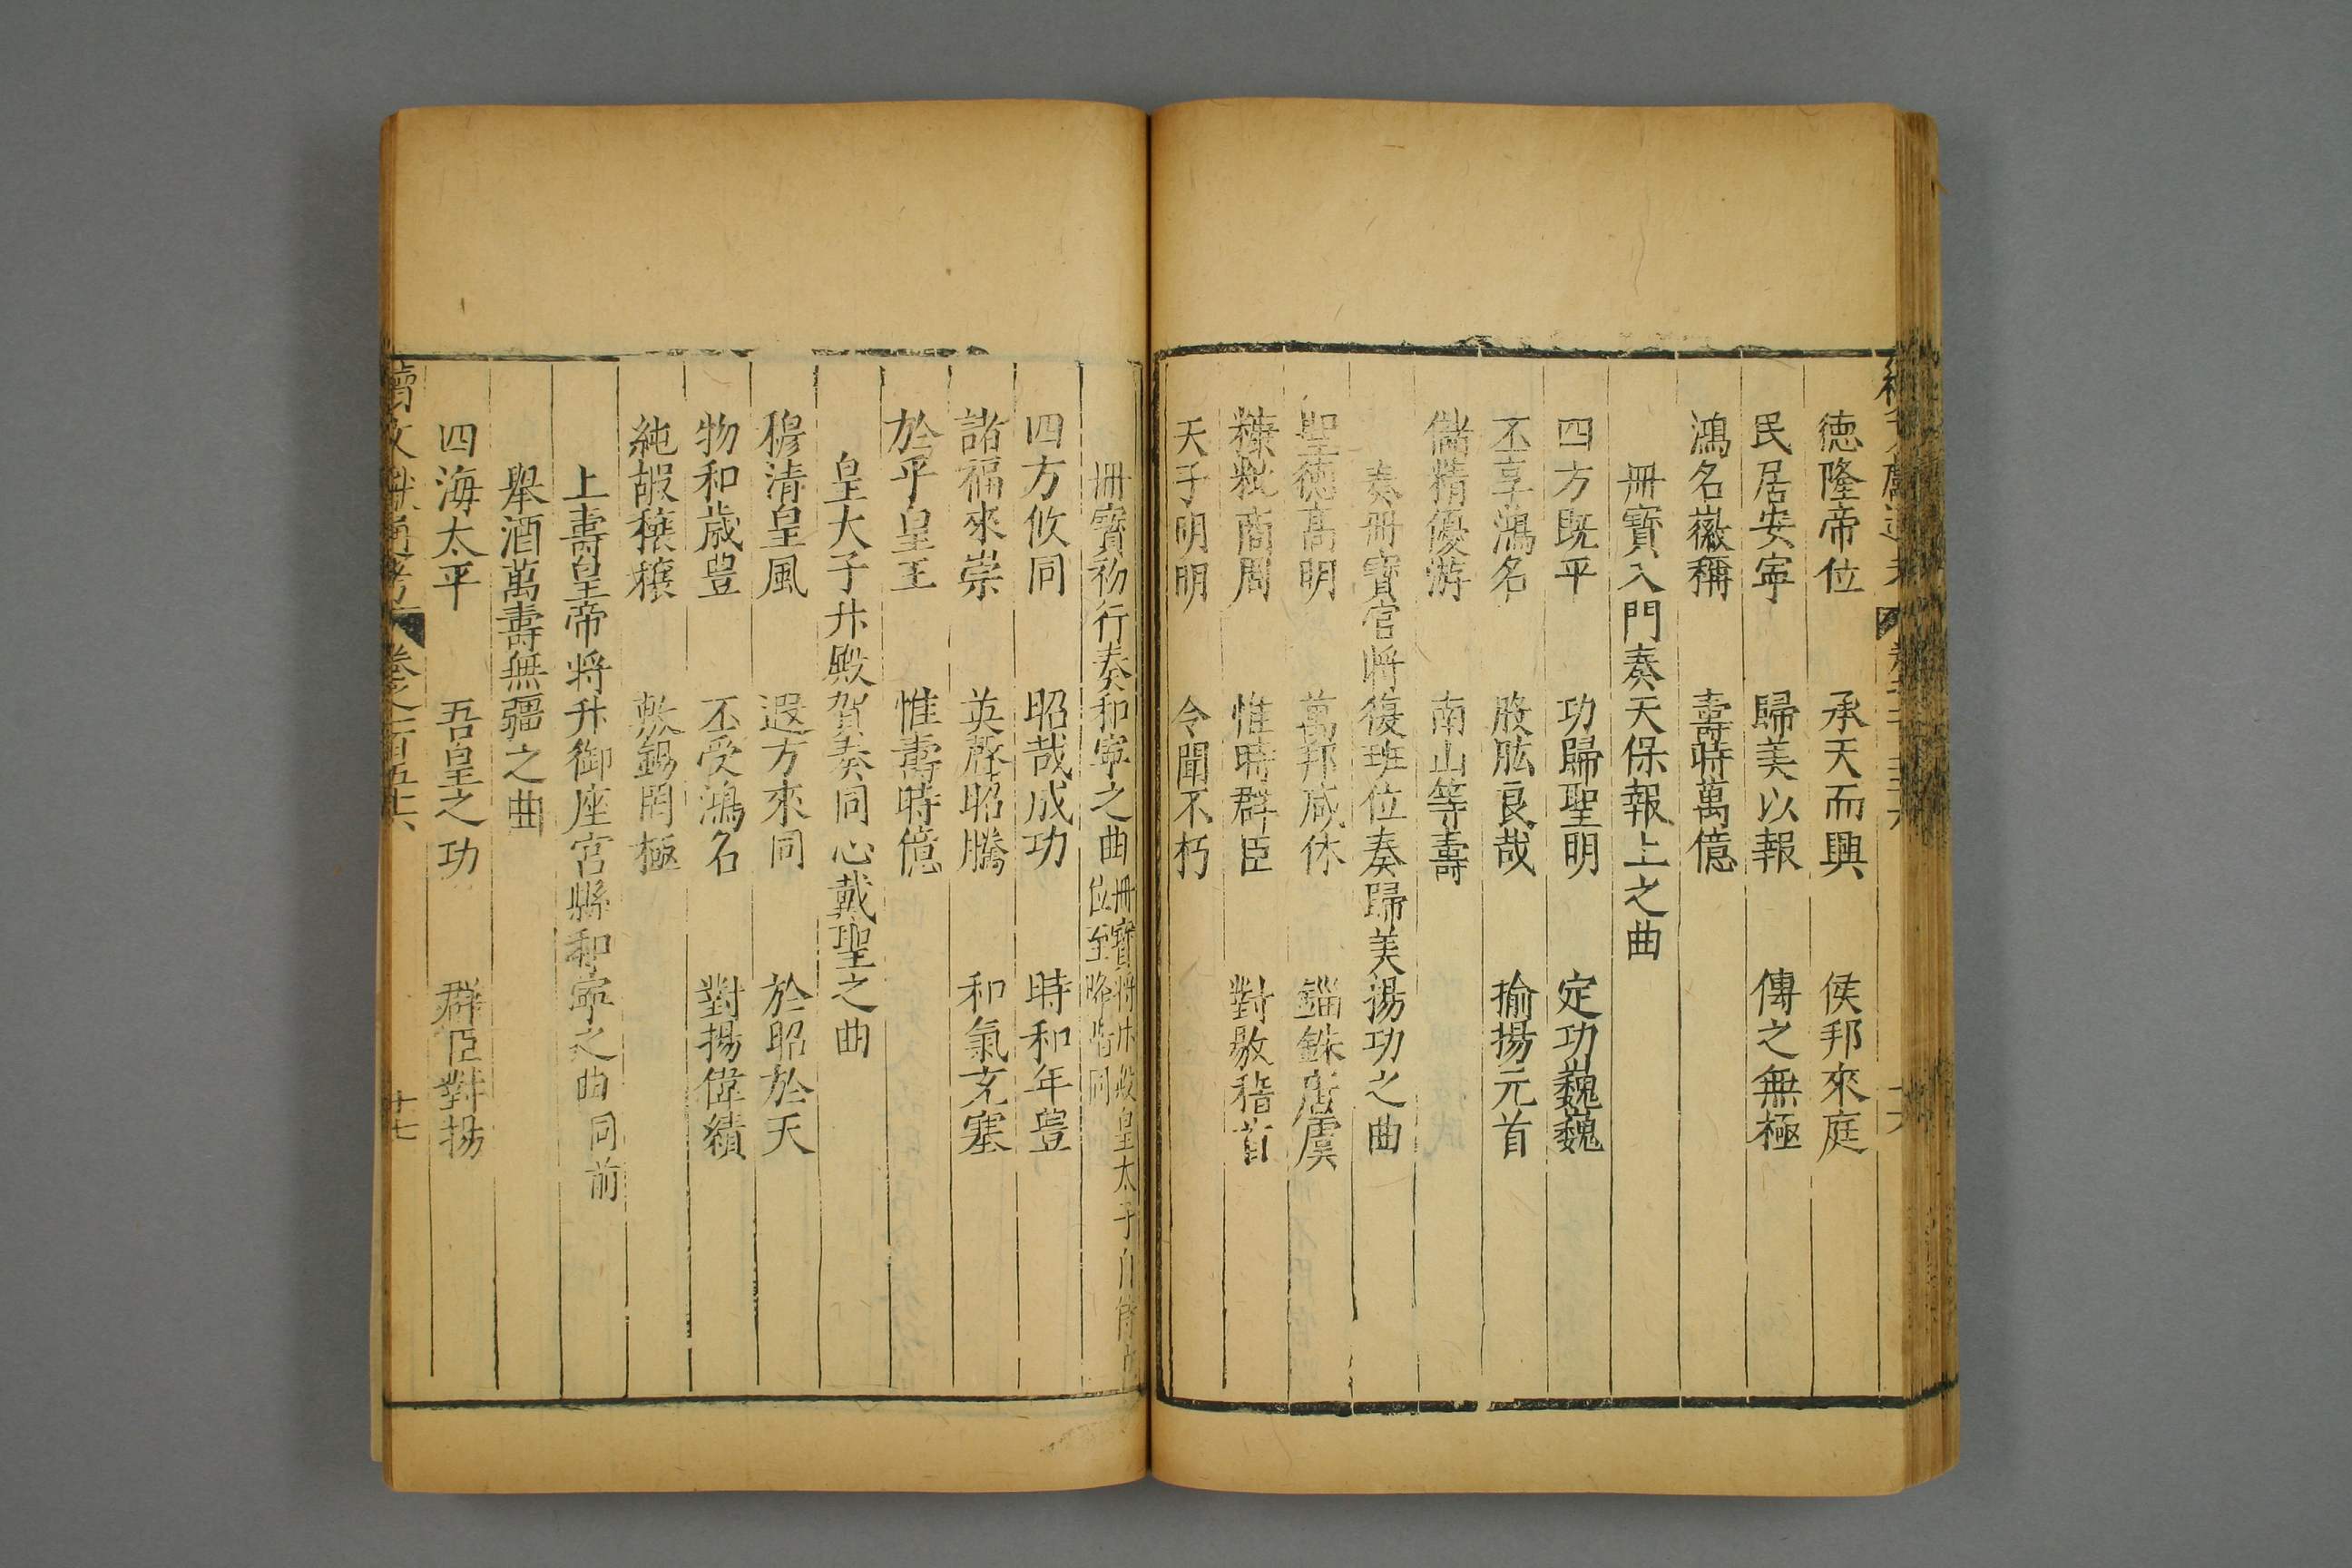 德隆帝位 承天而興 侯邦來庭
民居安寧 歸美以報 傳之無極
鴻名徽稱 壽時萬億
冊寶入門奏天保報上之曲
四方既平 功歸聖明 定功巍巍
丕享鴻名 股肱良哉 揄揚元首
儲精優游 南山等壽
奏冊寶官將復班位奏歸美揚功之曲
聖德高明 萬邦咸休 錙銖唐虞
糠粃商周 惟時群臣 對敭稽首
天子明明 令聞不朽
冊寶初行奏和寧之曲 冊寶將升殿皇太子自侍立
位至降階同
四方攸同 昭哉成功 時和年豊
諸福來崇 英聲昭騰 和氣充塞
於乎皇王 惟壽時億
皇大子升殿賀奏同心戴聖之曲
穆清皇風 遐方來同 於昭於天
物和歲豊 不受鴻名 對揚偉績
純嘏穰穰 敷錫罔極
上壽皇帝將升御座宮縣和寧之曲同前
舉酒萬壽無疆之曲
四海太平 吾皇之功 群臣對揚
續文獻通考 卷之一百五十六 十七